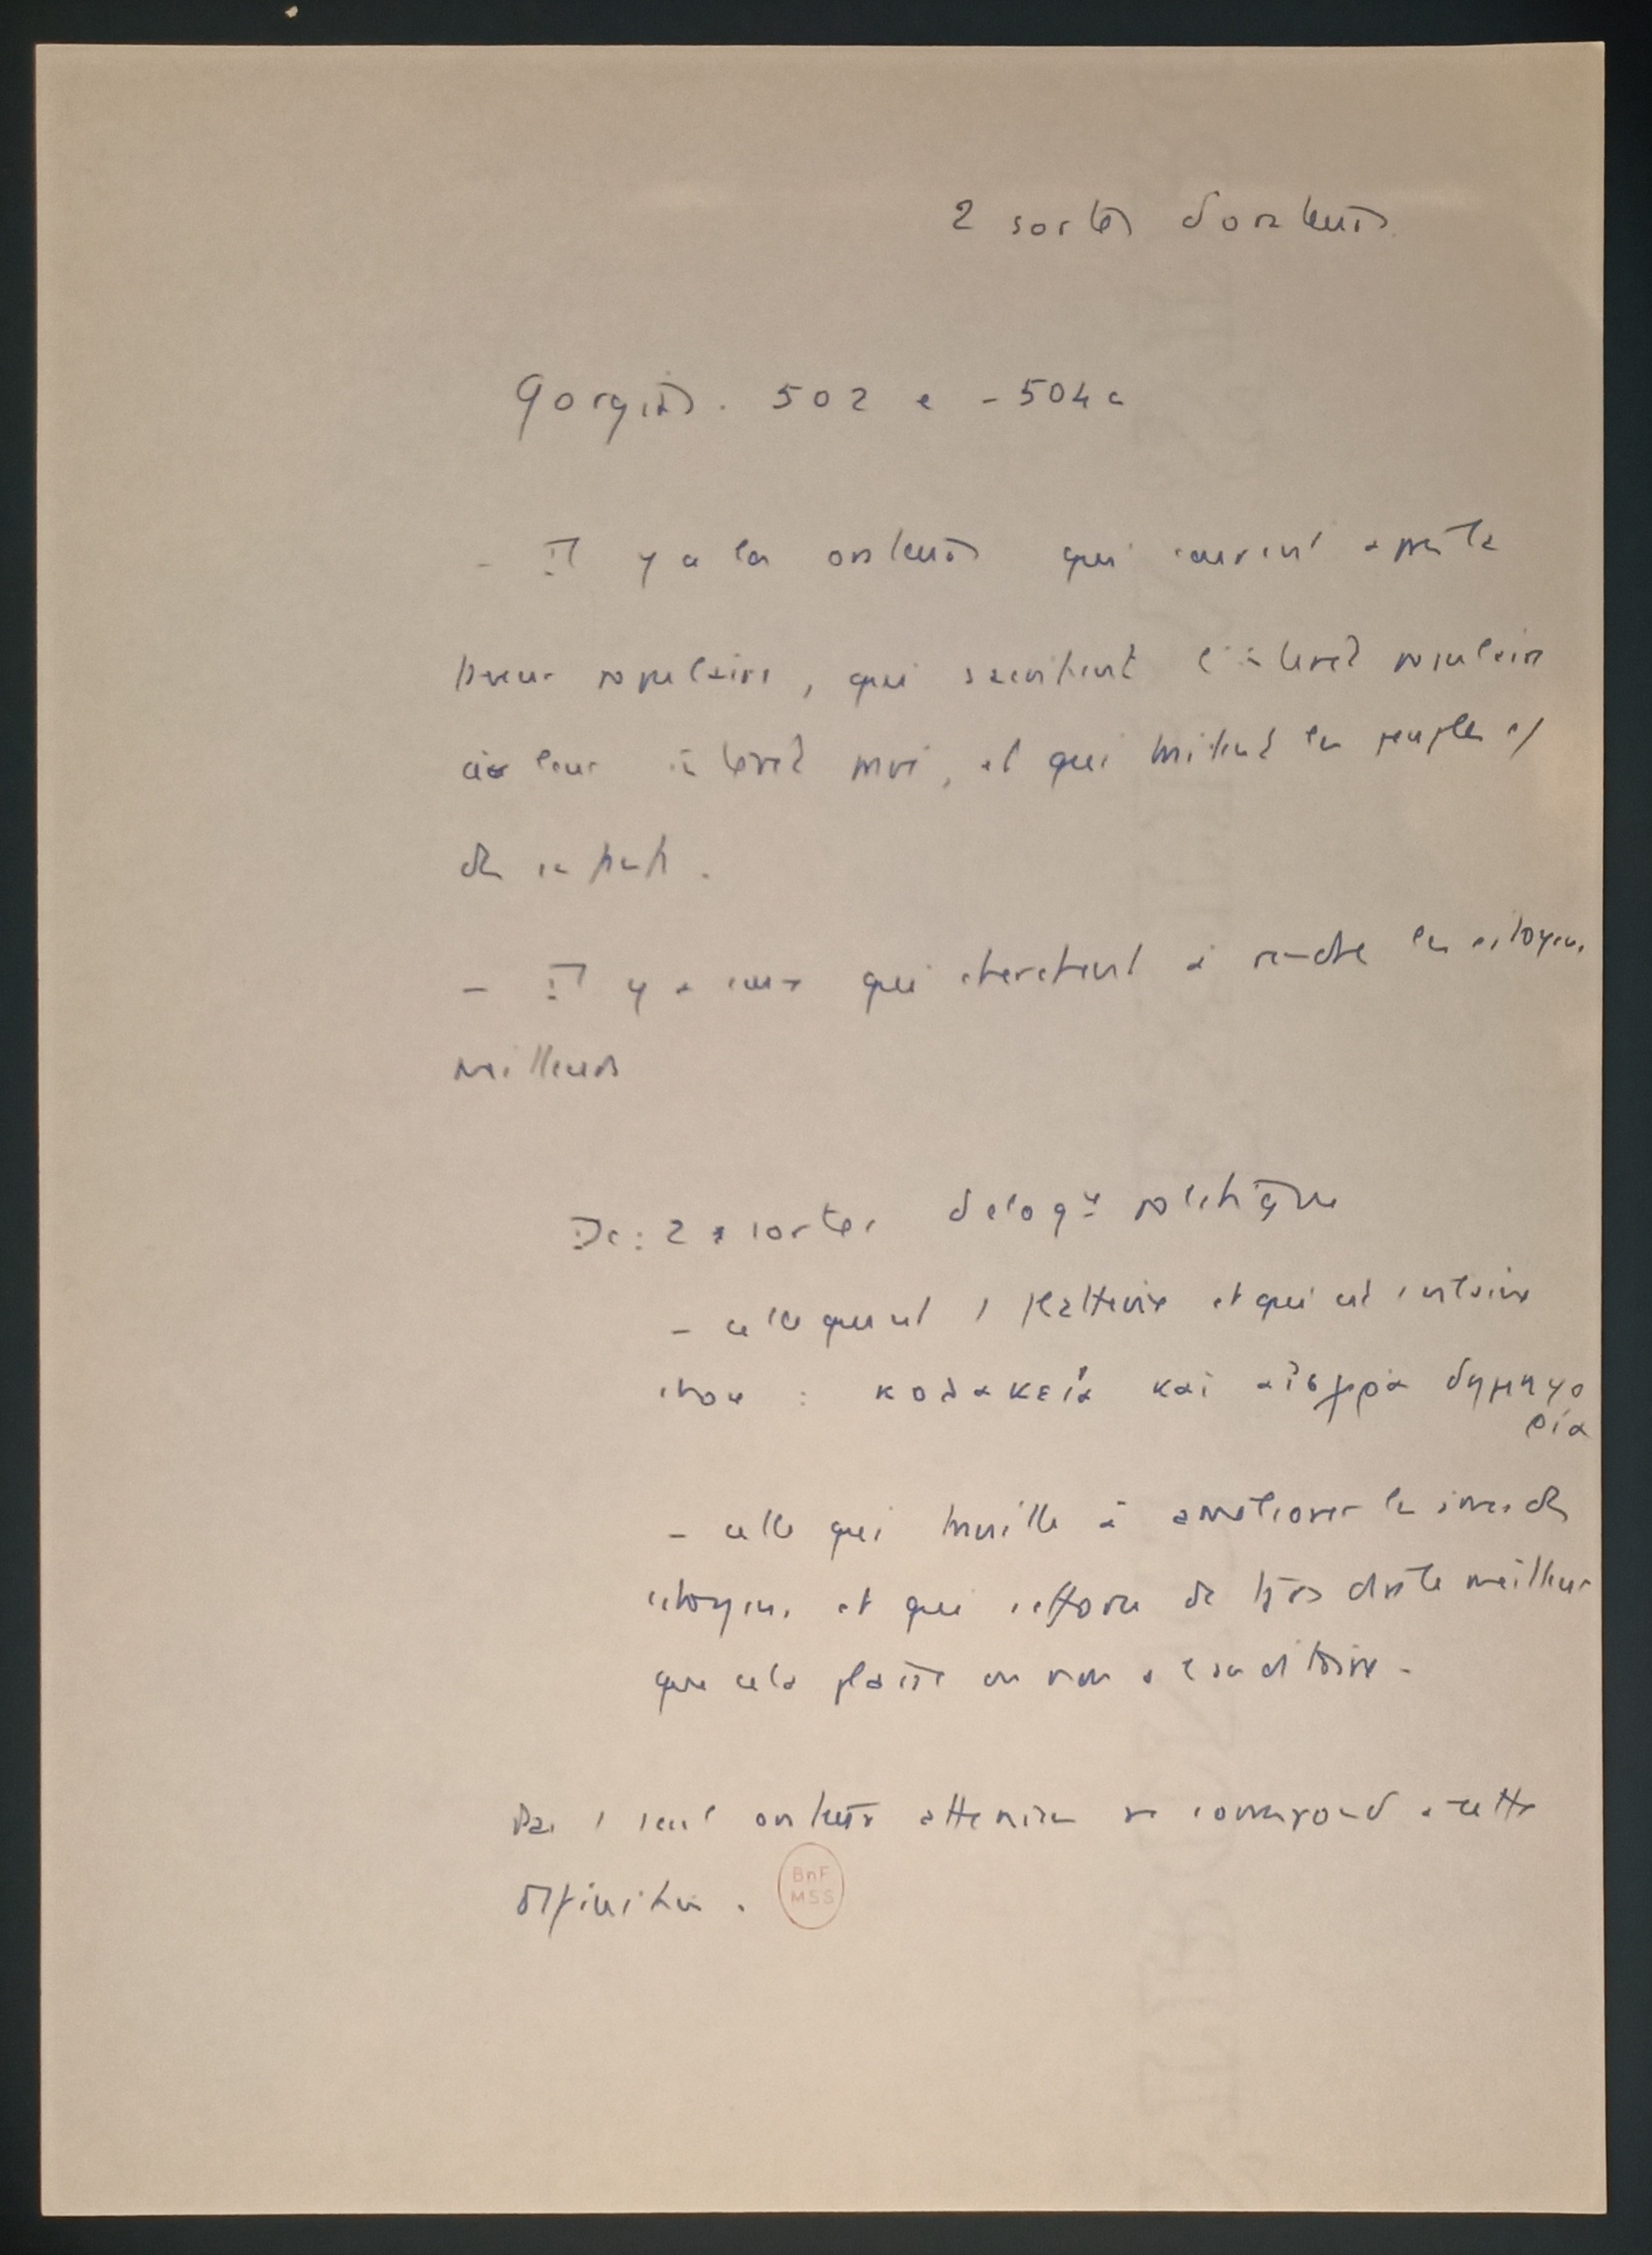 2 sortes d'orateurs
Gorgias. 502 e - 504 a
- Il y a les orateurs qui courent après la
faveur populaire, qui sacrifient l'intérêt populaire
à leur intérêt privé, et qui traitent les peuples c/
des enfants.
- Il y a ceux qui cherchent à rendre les citoyens
meilleurs
Dc : 2 sortes d'éloq. politique
- celle qui est 1 flatterie et qui est 1 vilaine
chose : κολακεία καὶ αἰσχρὰ δημηγο
ρία
- celle qui travaille à améliorer les âmes des
citoyens et qui s'efforce de tjrs dire le meilleur
que cela plaise ou non à l'auditoire.
Pas 1 seul orateur athénien ne correspond à cette
définition.
BnF
MSS